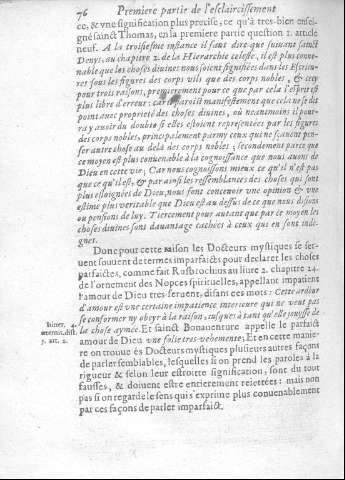 76 Premiere partie de l'esclaircissement
ce, & vne signification plus precise, ce qu'à tres-bien ensei-
gné sainct Thomas, en la premiere partie question 1. article
neuf. A la troisiesme instance il faut dire que suiuant sainct
Denys, au chapitre 2. de la Hierarchie celeste, il est plus conue-
nable que les choses diuines nous soient signifiées dans les Escritu-
res sous les figures des corps vils que des corps nobles, & cecy
pour trois raisons, premierement pour ce que par cela l'esprit est
plus libre d'erreur: car il paroist manifestement que cela ne se dit
point auec proprieté des choses diuines, où neantmoins il pour-
ra y auoir du doubte si elles estoient representées par les figures
des corps nobles, principalement parmy ceux qui ne sçauent pen-
ser autre chose au delà des corps nobles; secondement parce que
ce moyen est plus conuenable à la cognoissance que nous auons de
Dieu en cette vie; Car nous cognoissons mieux ce qu'il n'est pas
que ce qu'il est, & par ainsi les ressemblances des choses qui sont
plus esloignées de Dieu, nous font conceuoir vne opinion & vne
estime plus veritable que Dieu est au dessus de ce que nous disions
ou pensions de luy. Tiercement pour autant que par ce moyen les
choses diuines sont dauantage cachées à ceux qui en sont indi-
gnes.
Donc pour cette raison les Docteurs mystiques se ser-
uent souuent de termes imparfaicts pour declarer les choses
parfaictes, comme fait Rusbrochius au liure 2. chapitre 24.
de l'ornement des Nopces spirituelles, appellant impatient
l'amour de Dieu tres-feruent, disant ces mots: Cette ardeur
d'amour est vne certaine impatience interieure qui ne veut pas
se conformer ny obeyr à la raison, iusques à tant qu'elle iouysse de
la chose aymée. Et sainct Bonauenture appelle le parfaict
amour de Dieu vne folie tres vehemente, Et en cette manie-
re on trouue és Docteurs mystiques plusieurs autres façons
de parler semblables, lesquelles si on prend les paroles à la
rigueur & selon leur estroitte signification, sont du tout
fausses, & doiuent estre entierement reiettées: mais non
pas si on regarde le sens qui s'exprime plus conuenablement
par ces façons de parler imparfaict.
Itiner. 4.
æternit. dist.
5. art. 2.